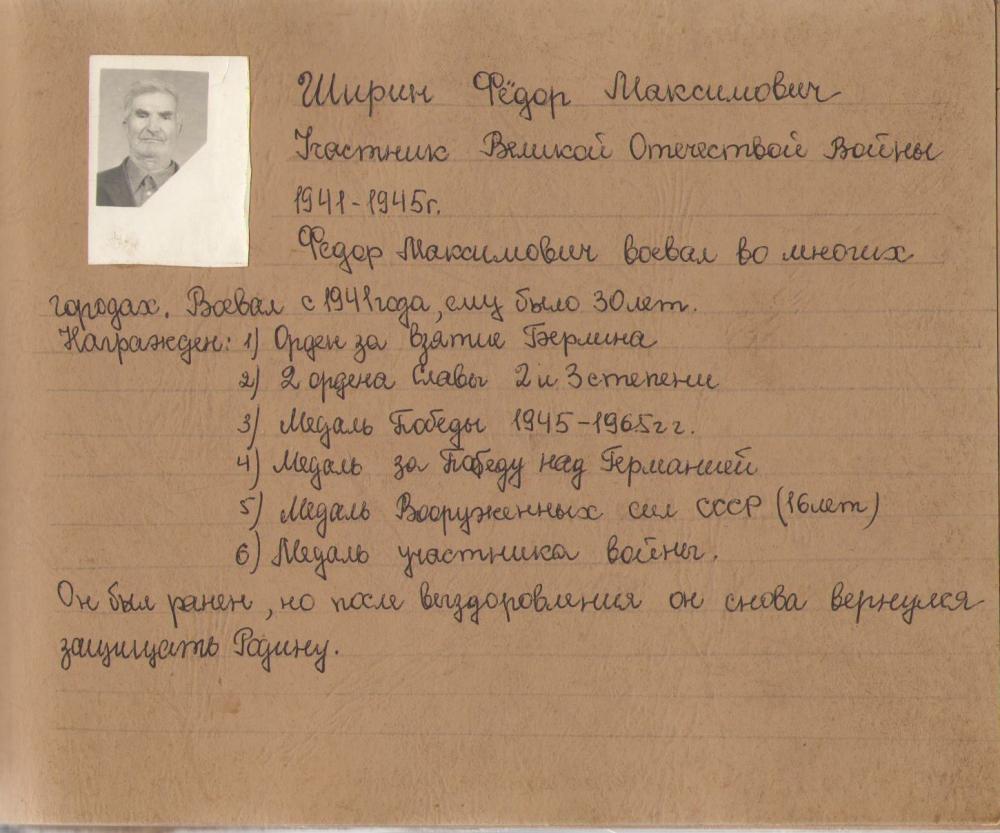 Ширин Фёдор Максимович
Участник Великой Отечествой Войны
1941-1945г.
Федор Максимович воевал во многих
городах. Воевал с 1941года, ему было 30лет.
Награжден: 1) Орден за взятие Берлина
2) 2 ордена Славы 2 и 3 степени
3) Медаль Победы 1945-1965г г.
4) Медаль за Победу над Германией
5) Медаль Вооруженных сил СССР (16лет)
6) Медаль участника войны.
Он был ранен, но после выздоровления он снова вернулся
защищать Родину.